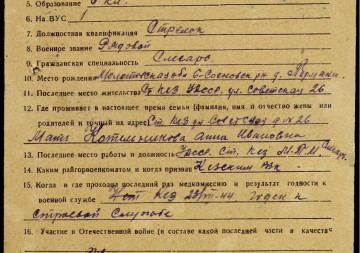 5. Образование 6 кл.
6. На ВУС 1
7. Должностная квалификация Стрелок
8. Военное звание Рядовой
9. Гражданская специальность Слесарь
10. Место рождения обл. Сосновский р-н д.
11. Последнее место жительства Ст Кез УАССР, ул. Советская 26
12. Где проживает в настоящее время семья (фамилия, имя, отчество жены или
родителей и точный их адрес) Ст Кез ул Советская д. №26
Мать Котельникова Анна Ивановна
13. Последнее место работы и должность УАССР. Ст. Кез М.Т.М. слесарь
14. Каким райгорвоенкоматом и когда призван Кезским РВК
15. Когда и где проходил последний раз медкомиссию и результат годности к
военной службе Кез 44 годен к
строевой службе
16. Участие в Отечественной войне (в составе какой последней части и качеств